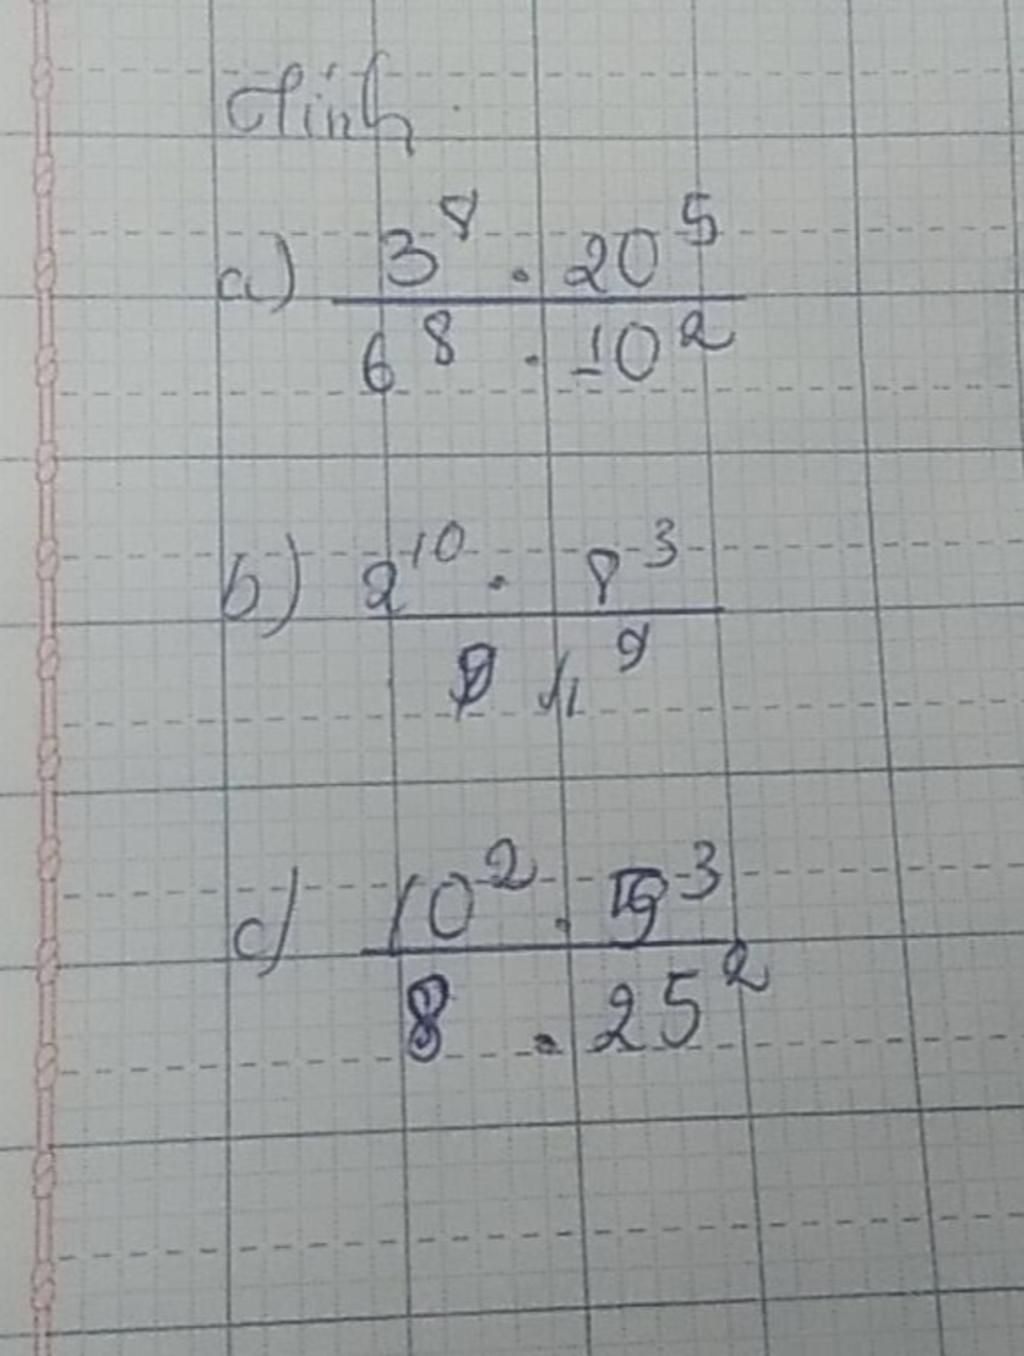 Tính
a) 3⁸ . 20⁵
6⁸ . 10²
b) 2¹⁰ . 8³
4⁹
c) 10² . 5³
8 . 25²